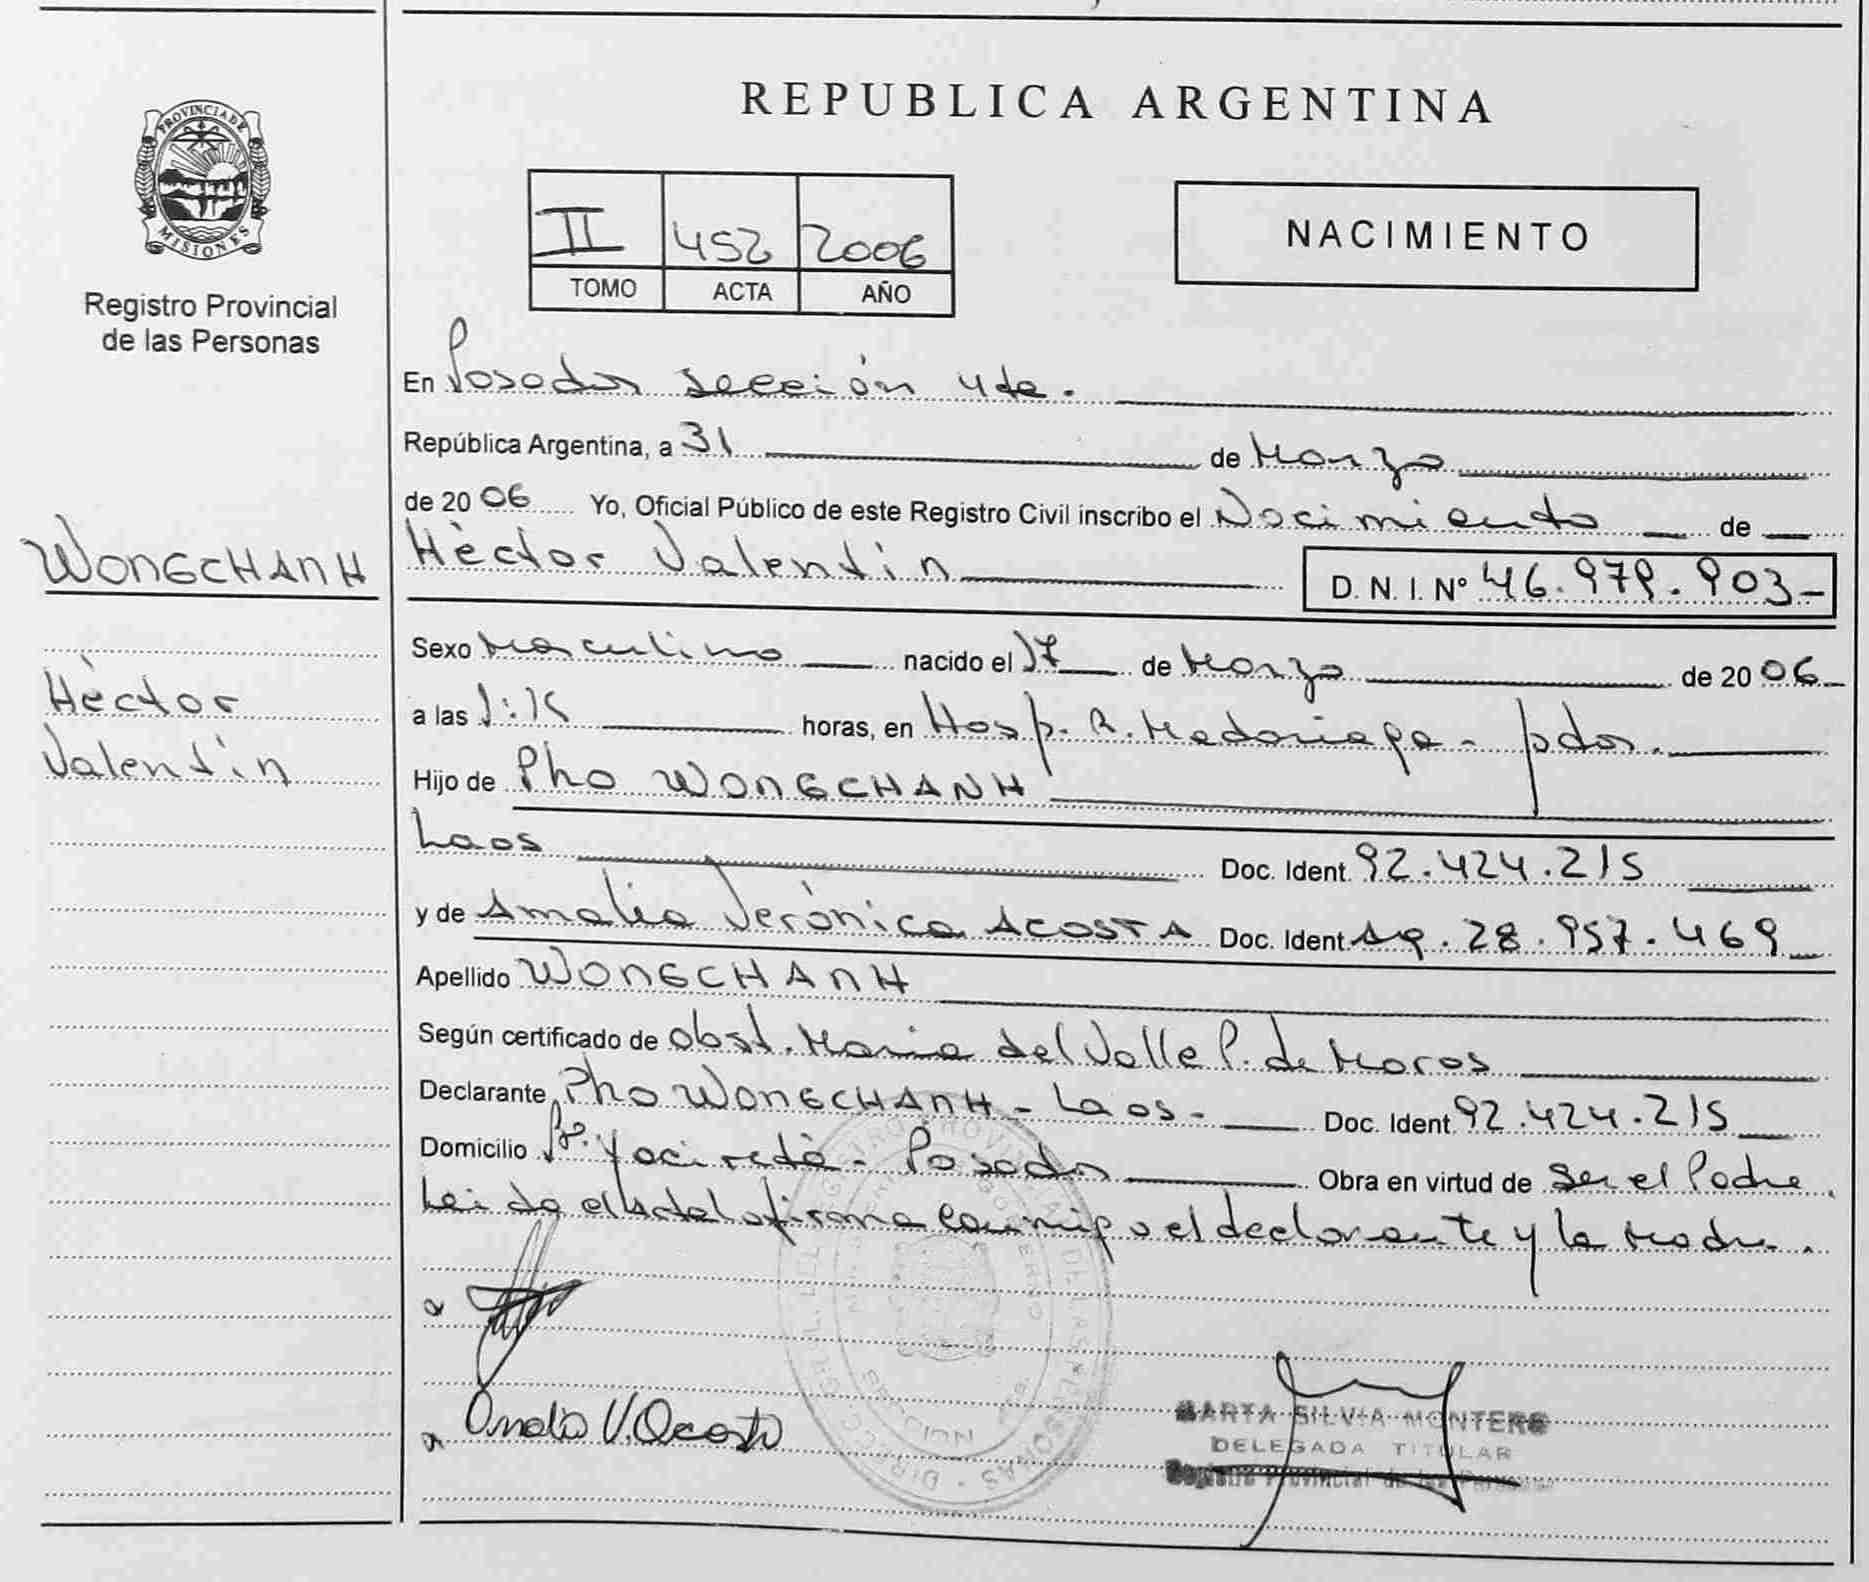 REPUBLICA ARGENTINA
PROVINCIA DE
MISIONES
Registro Provincial
de las Personas
II 452 2006
TOMO ACTA AÑO
NACIMIENTO
WONGCHANH
Hèctor
Valentìn
En Posadas sección 4ta.
República Argentina, a 31 de Marzo
de 2006 Yo, Oficial Público de este Registro Civil inscribo el Nacimiento de
Hèctor Valentìn D. N. I. Nº 46.979.903-
Sexo Masculino nacido el 17 de Marzo de 2006
a las 1:15 horas, en Hosp. R. Madariaga - pdas.
Hijo de Pho WONGCHANH
Laos Doc. Ident. 92.424.215
y de Amalia Verónica ACOSTA Doc. Ident Ag. 28.957.469
Apellido WONGCHANH
Según certificado de Obst. Maria del Valle P. de Moros
Declarante Pho WONGCHANH - Laos - Doc. Ident 92.424.215
Domicilio Bº. Yaciretà - Posadas Obra en virtud de ser el Padre.
Leida el acta la firman conmigo el declarante y la Madre.
Amalia V. Acosta
MARTA SILVIA MONTERO
DELEGADA TITULAR
Registro Provincial de las Personas